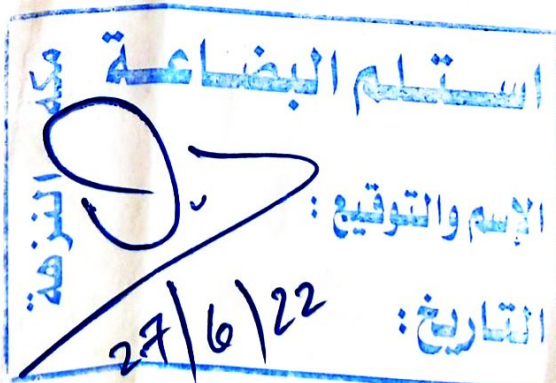 استلم البضاعة
الإسم والتوقيع :
التاريخ : 27/6/22
مكة النزهة